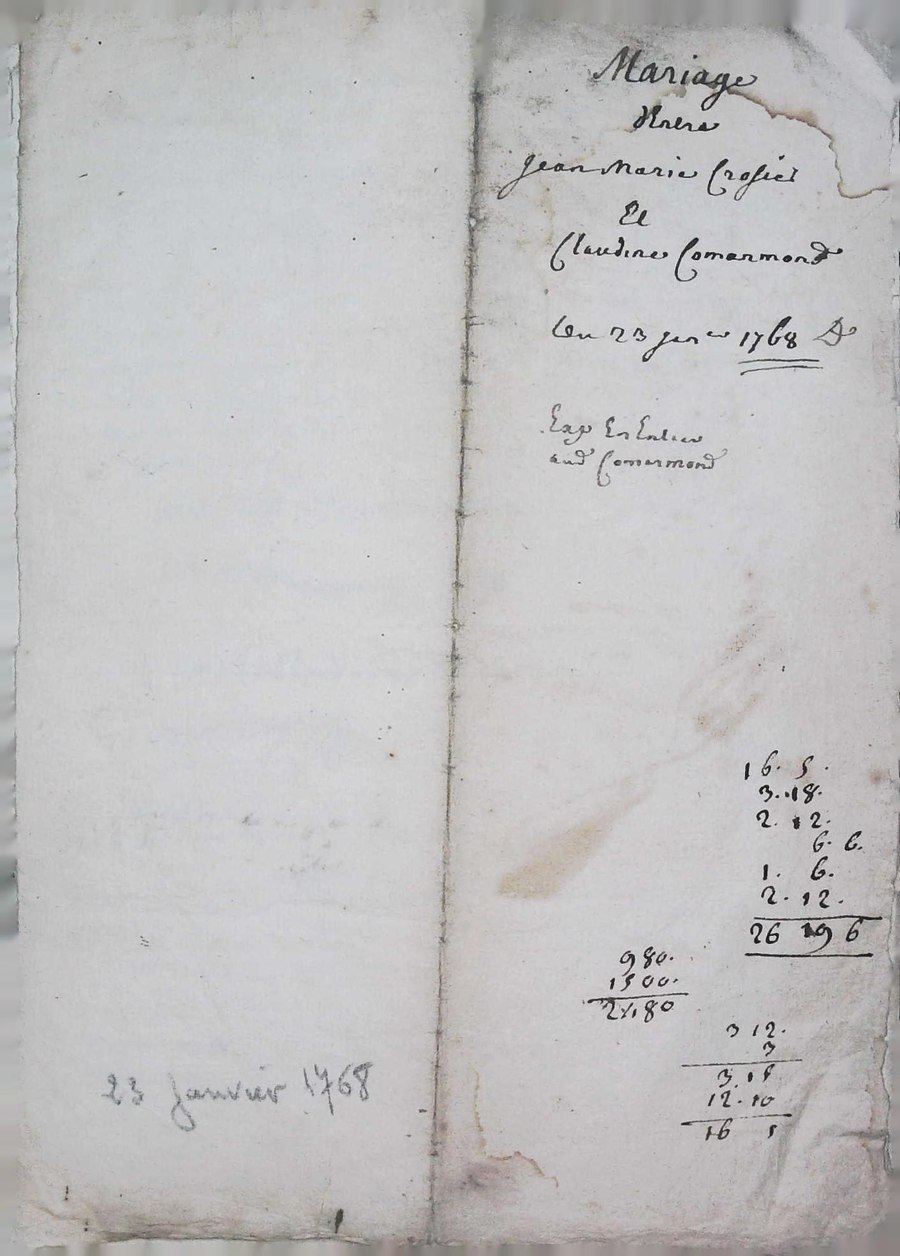 23 Janvier 1768
Mariage
d'Entre
Jean Marie Crosier
Et
Claudine Comarmond
Du 23 janer 1768
Exp En Entier
aud Comarmond
16. 5.
3. 18.
2. 12.
6. 6.
1. 6.
2. 12.
26 19 6
980.
1500.
2480
3 12.
3
3. 15
12. 10
16 5